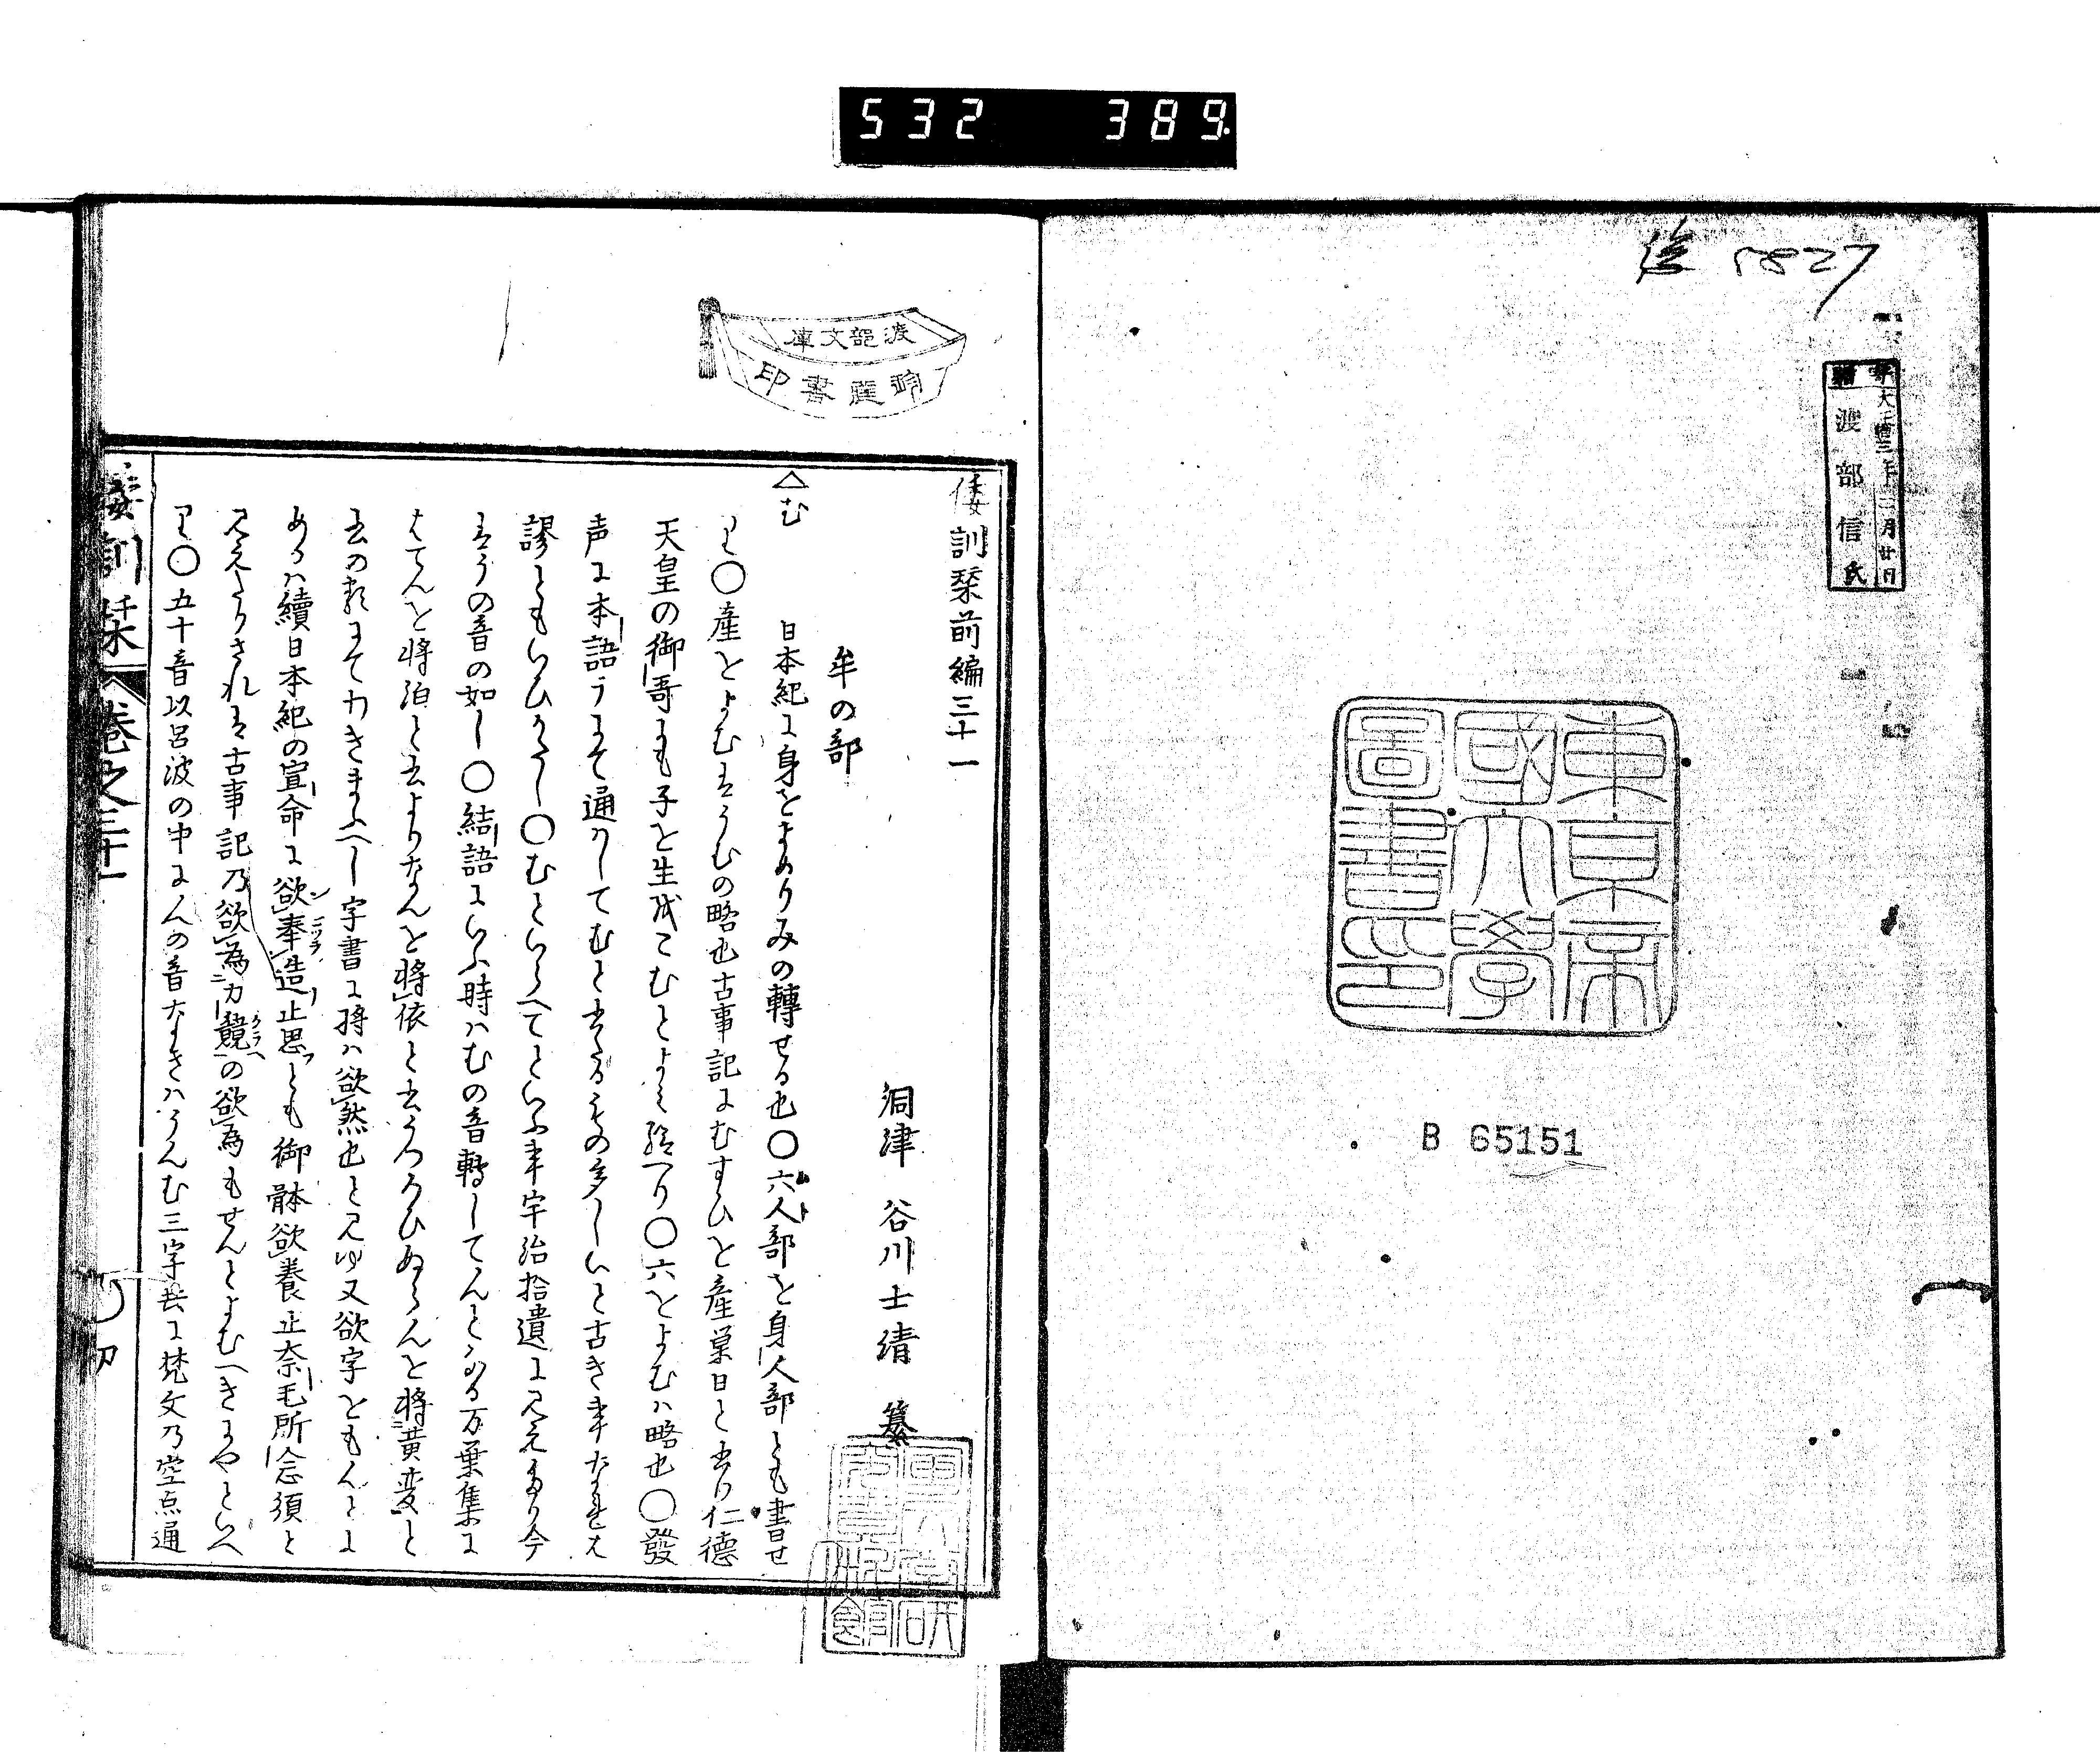 532 389
5827
大正拾三年二月廿日
渡部信氏
東京帝
國大學
圖書印
B 65151
渡部文庫
珂䕻書印
倭訓栞前編三十一
洞津 谷川士清 纂
牟の部
む
日本紀に身をよめりみの轉せる也〇六人部を身人部とも書せ
り〇産をよむはうむの略也古事記にむすひを産巣日と書り仁徳
天皇の御哥にも子を生茂こむとよみ給へり〇六をよむハ略也〇發
声に本語うにて通ハしてむと書るもの多しいと古き事なれは
謬ともいひかたし〇むといらへてといふ事宇治拾遺に見えたり今
はうの音の如し〇結語にいふ時ハむの音轉してんとなる万葉集に
はてんを将泊と書よりなんを将依と書うつろひぬらんを将黄変と
書の類にてわきまふへし字書に将ハ欲然也と見ゆ又欲字をもんとよ
めるハ續日本紀の宣命に欲奉造止思フとも御躰欲養止奈毛所念須と
見えたりされは古事記乃欲為力競の欲為もせんとよむへきにやといへ
り〇五十音以呂波の中にんの音なきハうんむ三字共に梵文乃空点通
倭訓栞 卷之三十一